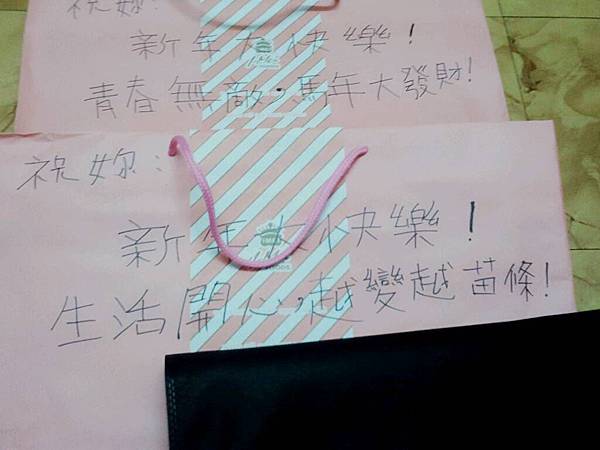 祝妳：
新年大快樂！
青春無敵，馬年大發財！
祝妳：
新年大快樂！
生活開心，越變越苗條！